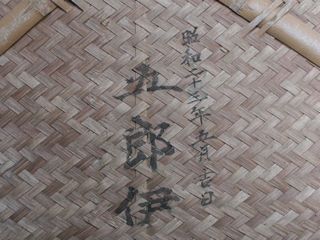 昭和二十三年五月吉日
五郎伊